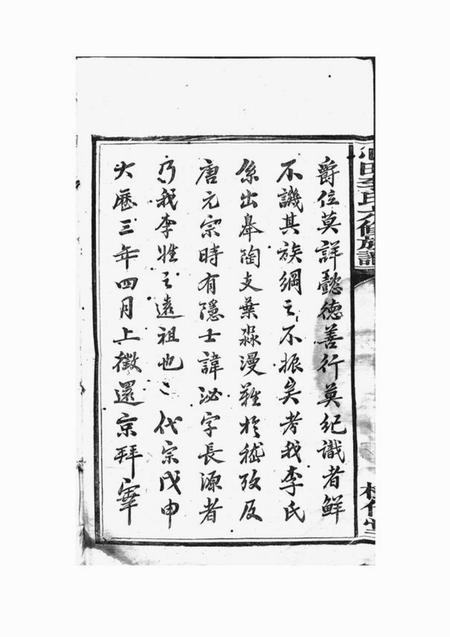 爵位莫詳懿德善行莫紀識者鮮
不譏其族綱之不振矣考我李氏
系出皋陶支葉淼漫難於嵇攷及
唐元宗時有隱士諱泌字長源者
乃我李姓之遠祖也代宗戊申
大厯三年四月上徵還京拜宰
田李氏六修族譜